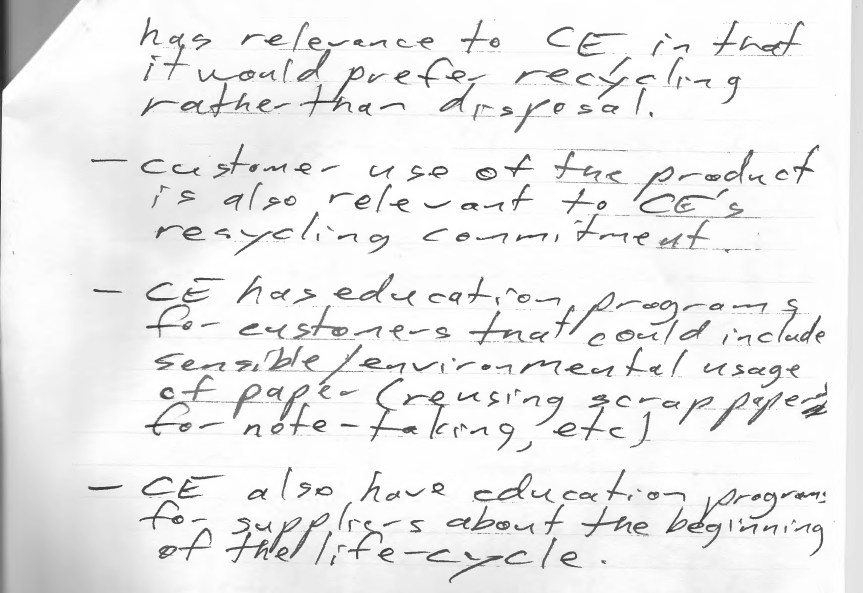 has relevance to CE in that
it would prefer recycling
rather than disposal.
- customer use of the product
is also relevant to CE's
recycling commitment.
- CE has education programs
for customers that could include
sensible/environmental usage
of paper (reusing scrap paper
for note-taking, etc)
- CE also have education programs
for suppliers about the beginning
of the life-cycle.